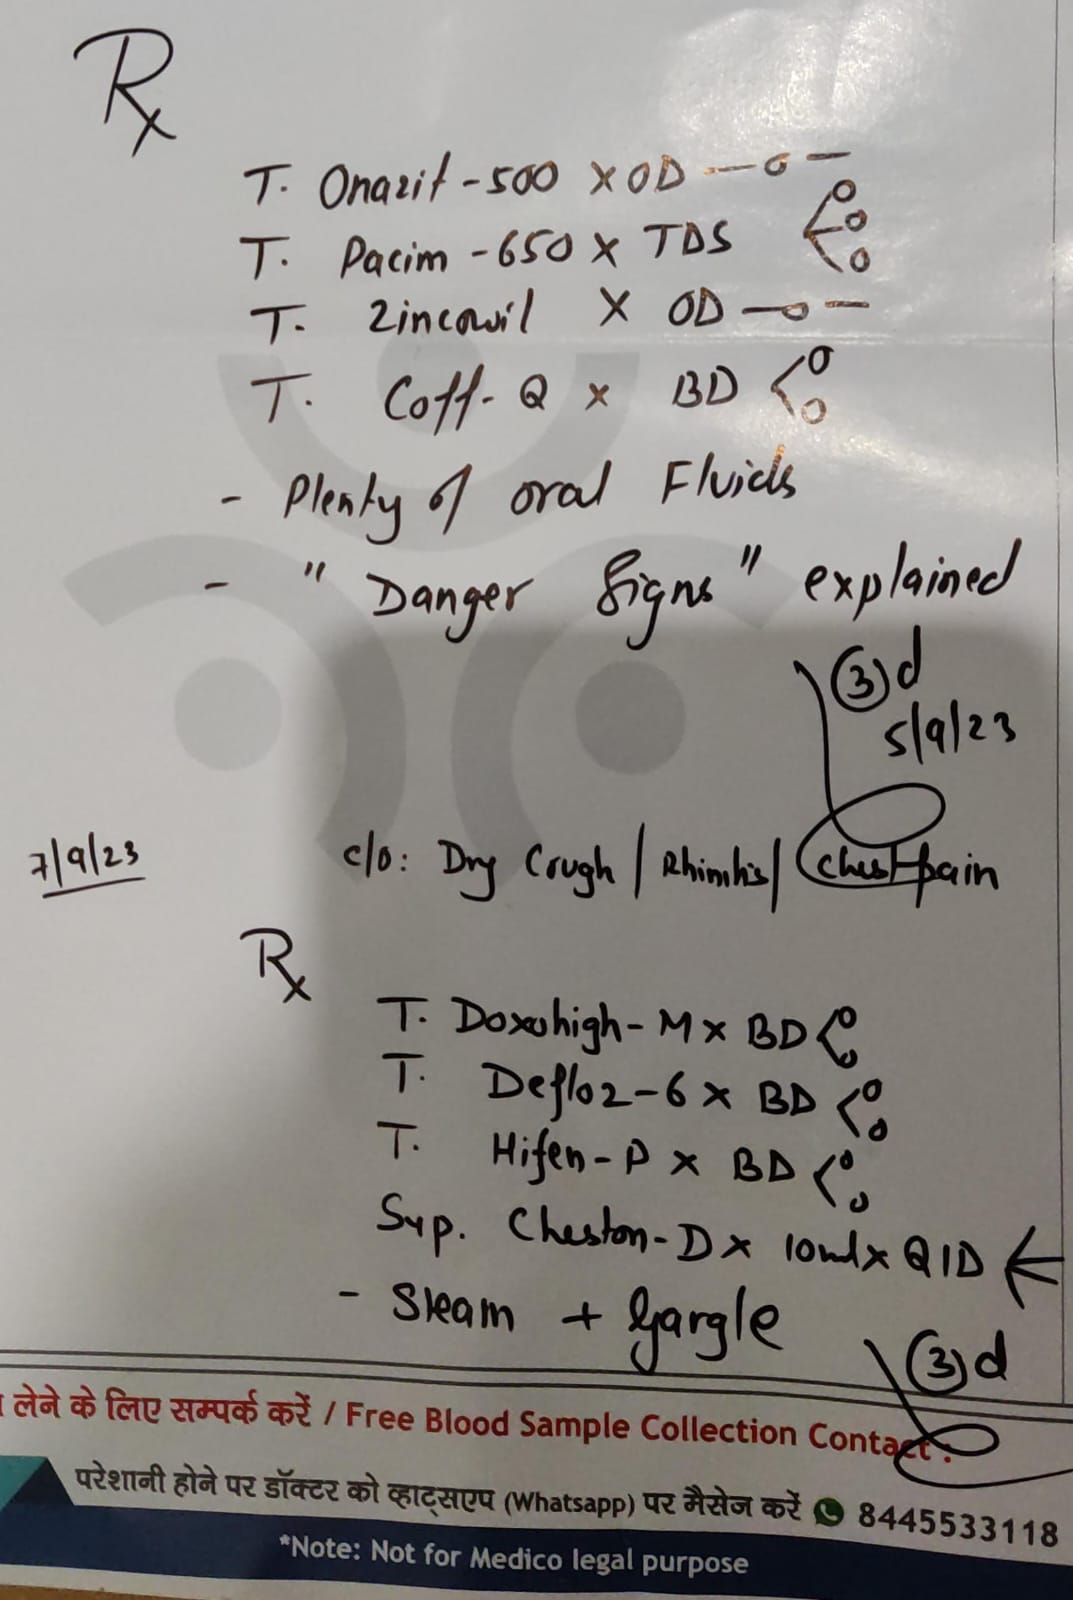 Rx
T. Onazit - 500 x OD — o —
T. Pacim - 650 x TDS
T. Zincovil x OD — o —
T. Coff-Q x BD
- Plenty of oral Fluids
- "Danger Signs" explained
3 d
5/9/23
7/9/23 c/o: Dry Cough / Rhinitis / Chest pain
Rx
T. Doxohigh-M x BD
T. Defloz-6 x BD
T. Hifen-P x BD
Syp. Cheston-D x 10ml x QID
- Steam + Gargle
3 d
लेने के लिए सम्पर्क करें / Free Blood Sample Collection Contact :
परेशानी होने पर डॉक्टर को व्हाट्सएप (Whatsapp) पर मैसेज करें 8445533118
*Note: Not for Medico legal purpose